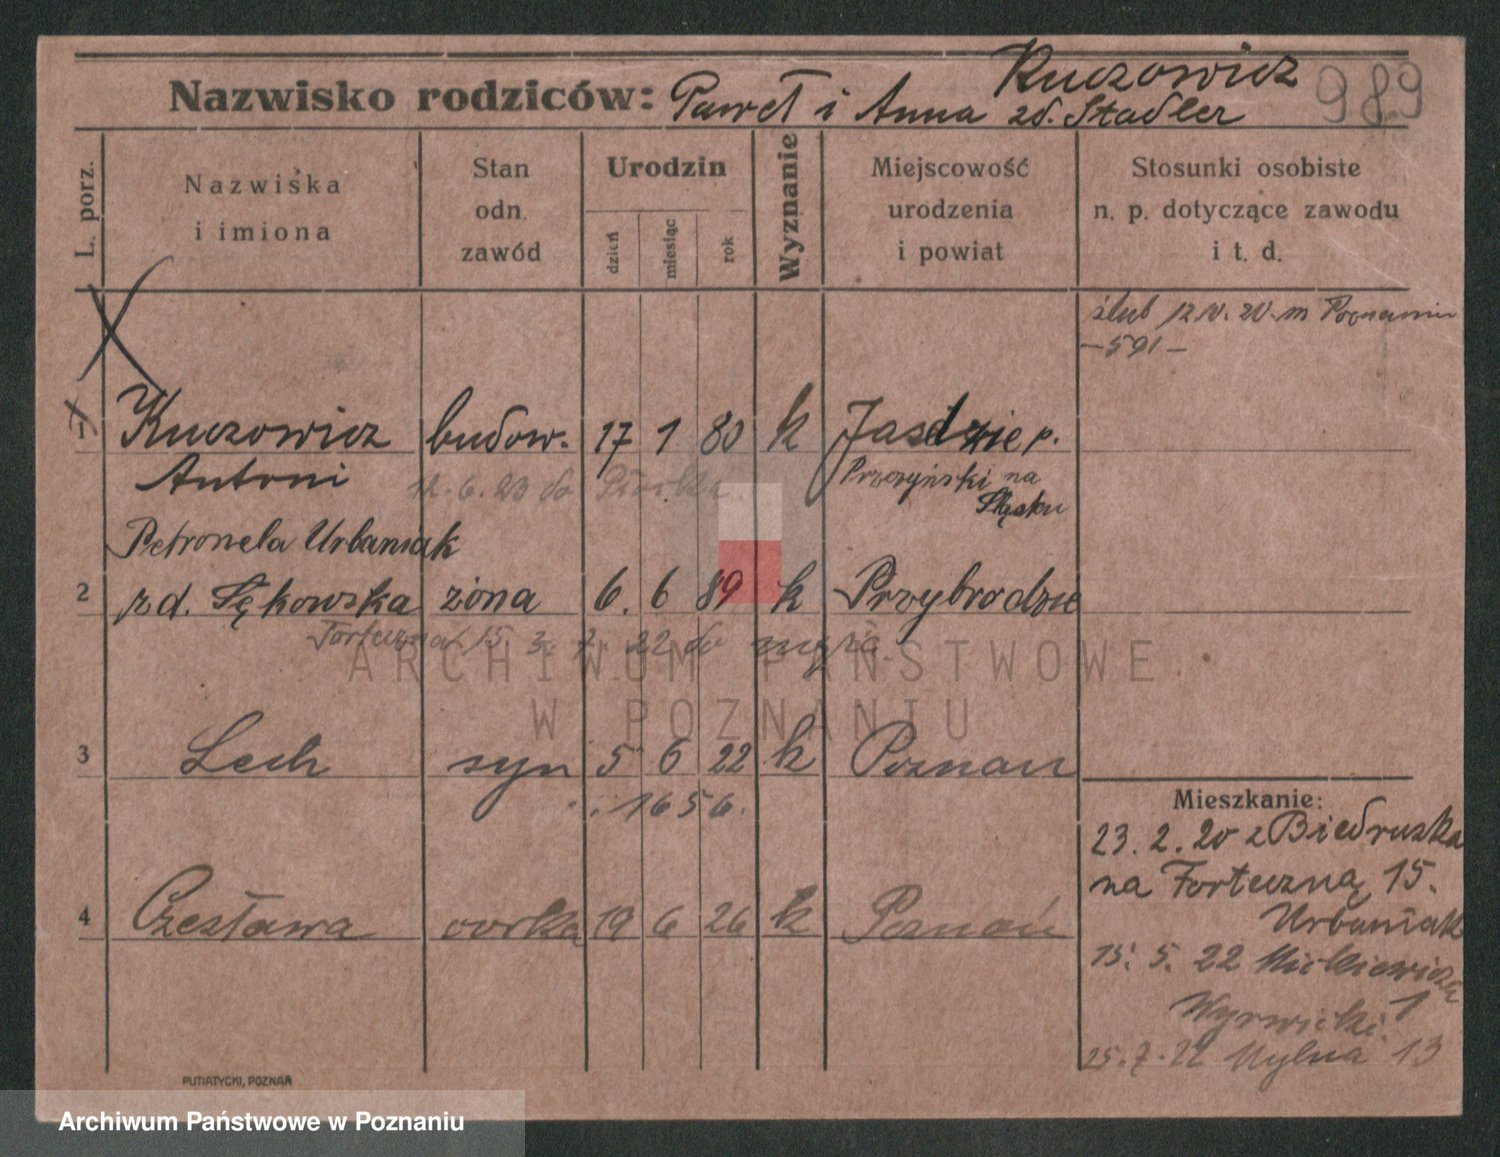 Kuczowicz
Nazwisko rodziców: Paweł i Anna zd. Stadler 989
L. porz.
Nazwiska i imiona
Stan odn. zawód
Urodzin
dzień miesiąc rok
Wyznanie
Miejscowość urodzenia i powiat
Stosunki osobiste n. p. dotyczące zawodu i t. d.
ślub 12.IV.20. m Poznaniu
— 591 —
1 Kuczowicz budow. 17 1 80 k p.
Antoni
12.6.23 do
na Śląsku
Petronela Urbaniak
2 zd. Sękowska żona 6. 6 89 k Przybrodzie
Forteczna 15. 22 do
ARCHIWUM PAŃSTWOWE
W POZNANIU
3 Lech syn 5 6 22 k Poznań
1656.
4 Czesława córka 19 6 26 k Poznań
Mieszkanie:
23. 2. 20 z Biedruska
na Forteczną 15.
Urbaniak
15. 5. 22 Mickiewicza 1
25.7.22 Mylna 13
PUTIATYCKI, POZNAŃ
Archiwum Państwowe w Poznaniu